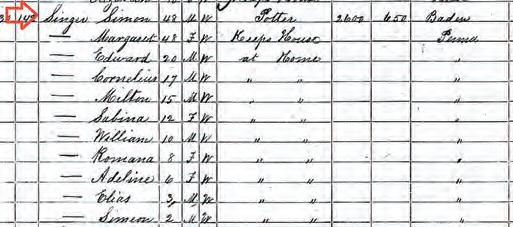 142 Singer Simon 48 M W Potter 2600 650 Baden
— Margaret 48 F W Keeps House Penna
— Edward 20 M W at Home "
— Cornelius 17 M W " " "
— Milton 15 M W " " "
— Sabina 12 F W " " "
— William 10 M W " " "
— Romana 8 F W " " "
— Adeline 6 F W " " "
— Elias 3 M W " " "
— Simeon 2 M W " " "